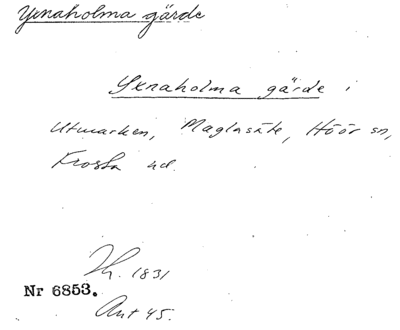 Yxnaholma gärde
Yxnaholma gärde i
Utmarken, Maglasäte, Höör sn,
Frosta hd.
1831
Nr 6853.
Ant 45.